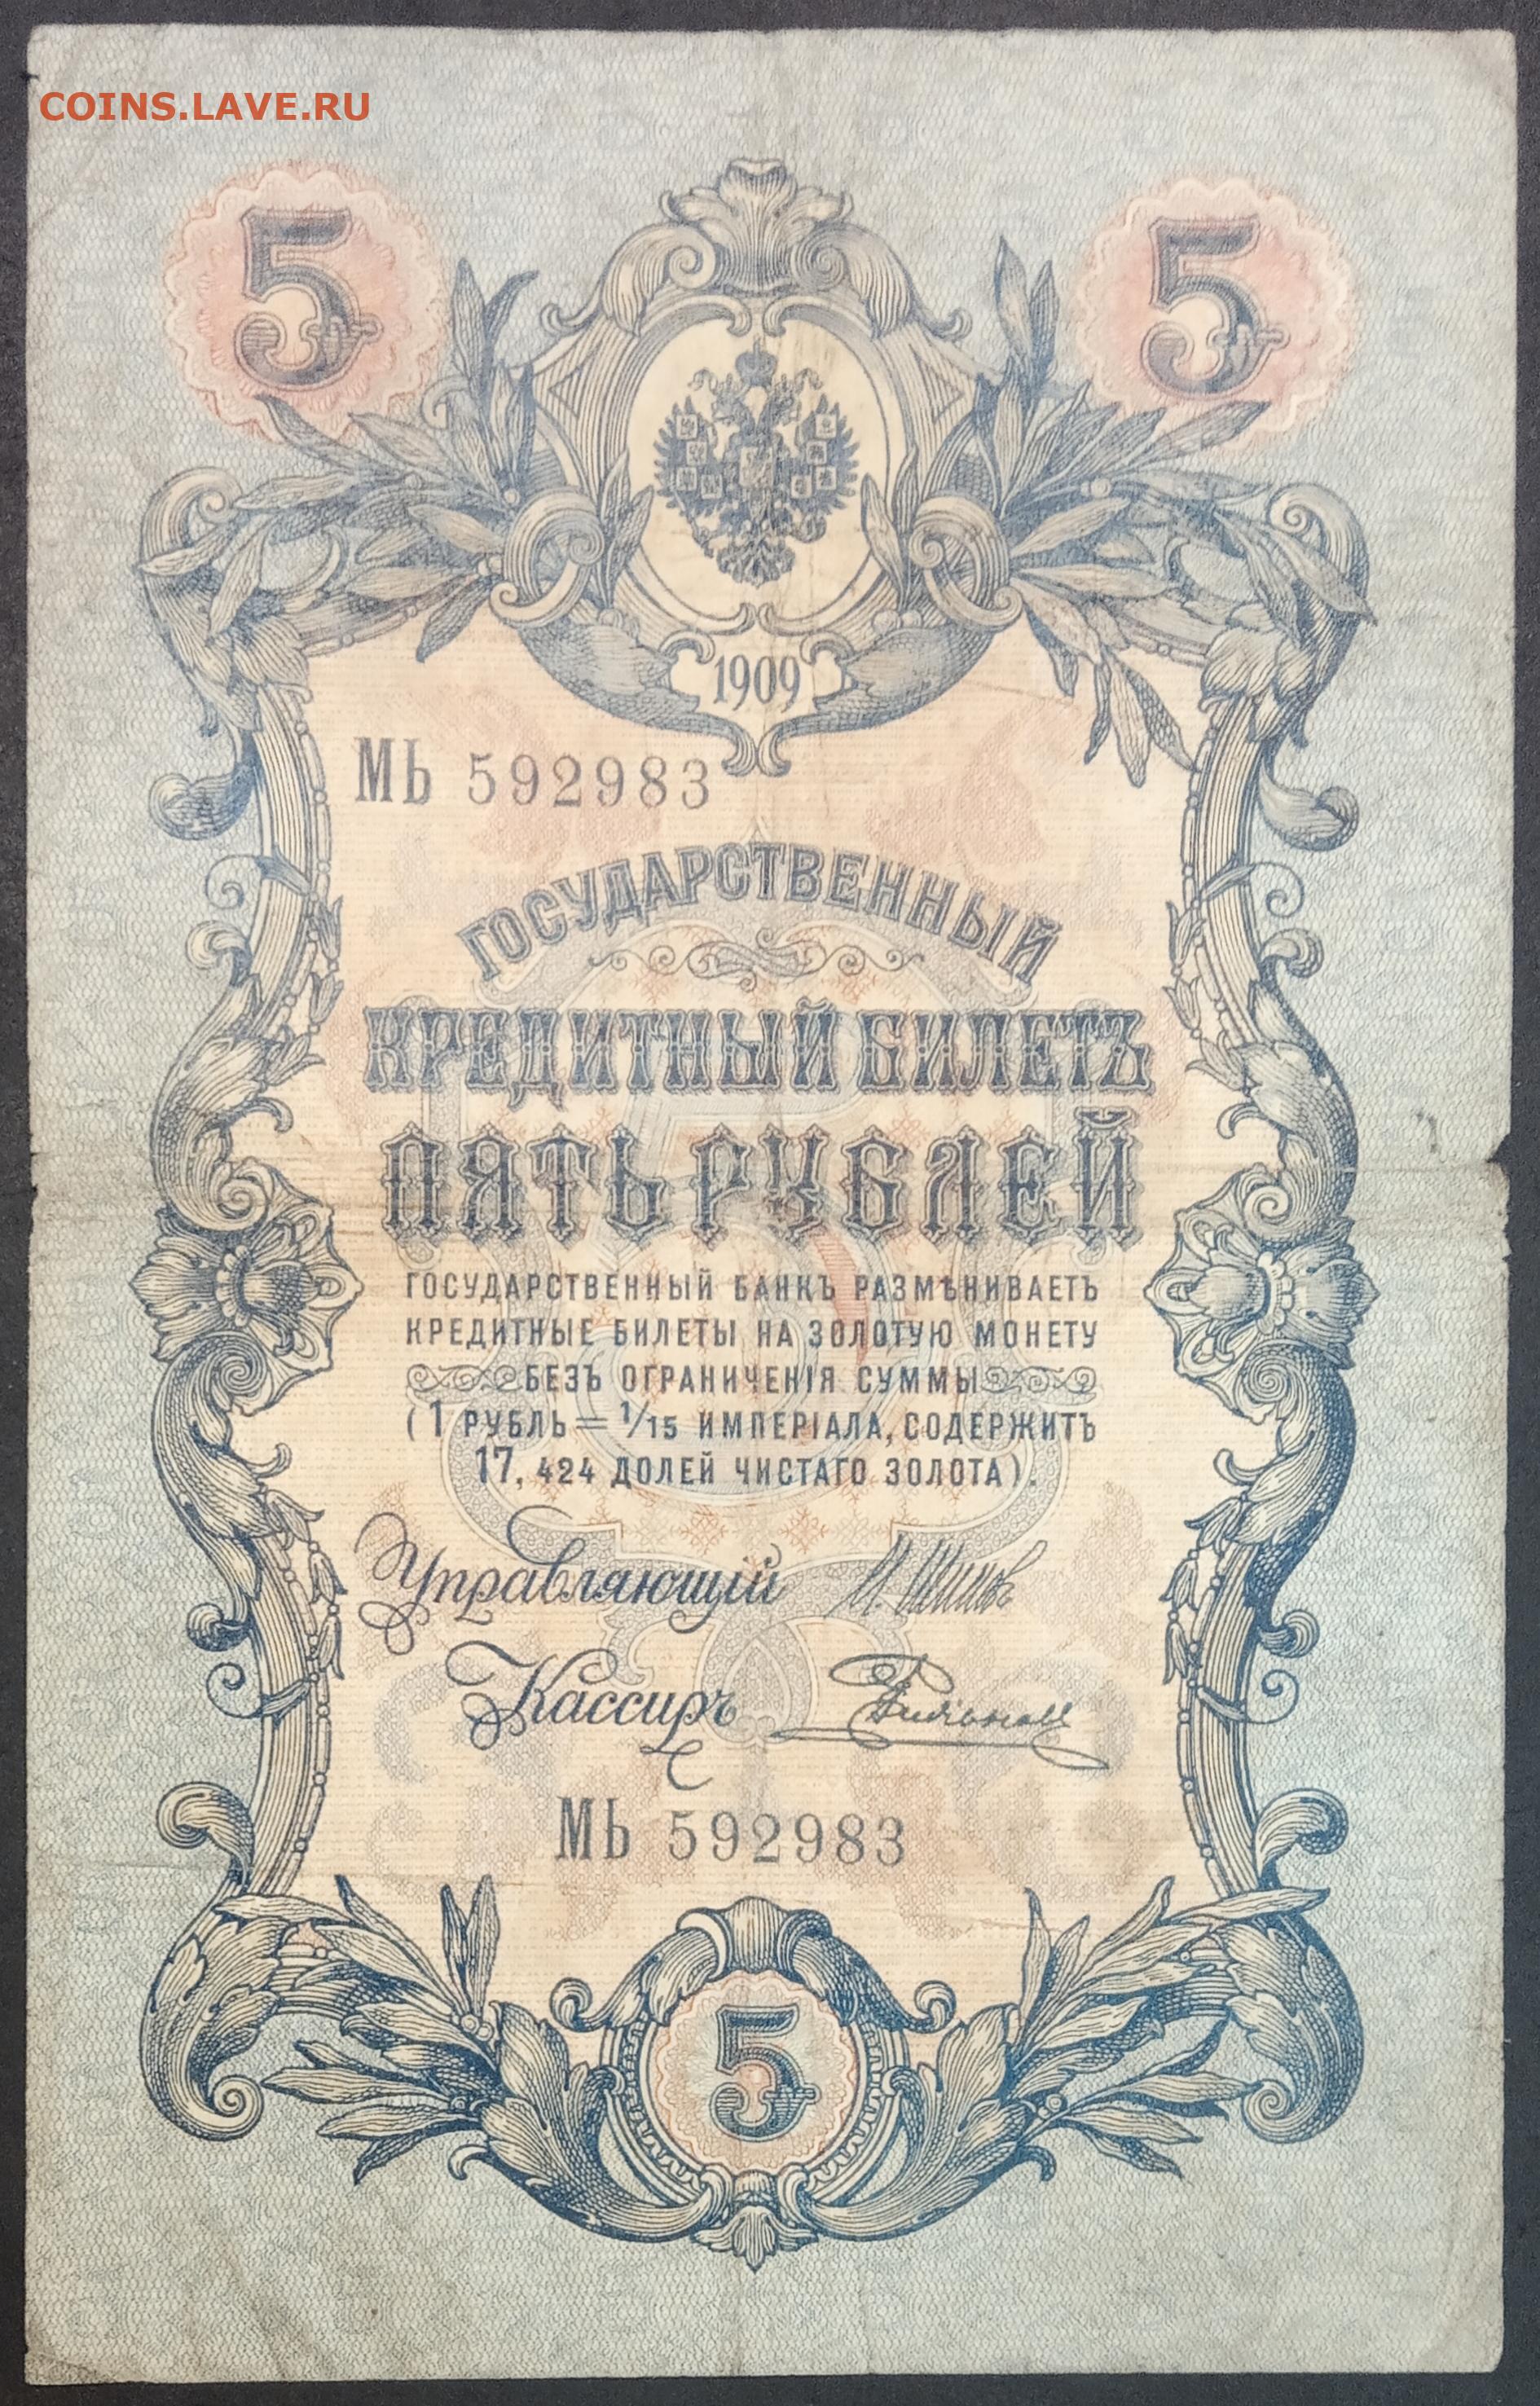 COINS.LAVE.RU
5 5
1909
МЬ 592983
ГОСУДАРСТВЕННЫЙ
КРЕДИТНЫЙ БИЛЕТЪ
ПЯТЬ РУБЛЕЙ
ГОСУДАРСТВЕННЫЙ БАНКЪ РАЗМѢНИВАЕТЪ
КРЕДИТНЫЕ БИЛЕТЫ НА ЗОЛОТУЮ МОНЕТУ
БЕЗЪ ОГРАНИЧЕНІЯ СУММЫ
(1 РУБЛЬ = 1/15 ИМПЕРІАЛА, СОДЕРЖИТЪ
17, 424 ДОЛЕЙ ЧИСТАГО ЗОЛОТА).
Управляющій И. Шипов
Кассиръ
МЬ 592983
5